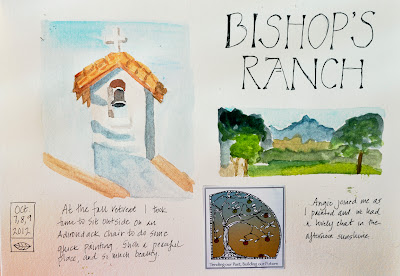 BISHOP'S
RANCH
Oct
7,8,9
2012
At the fall retreat I took
time to sit outside on an
Adirondack chair to do some
quick painting. Such a peaceful
place, and so much beauty.
Tending our Past, building our Future
Angie joined me as
I painted and we had
a lovely chat in the
afternoon sunshine.